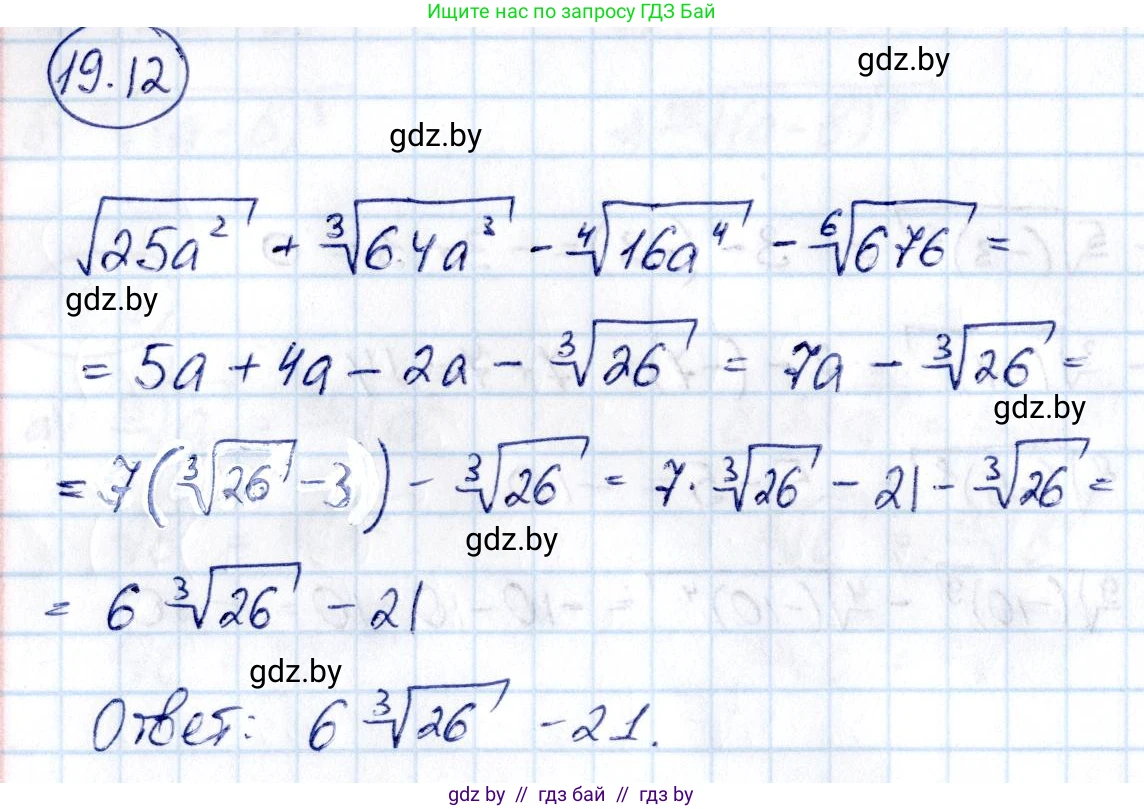 Ищите нас по запросу ГДЗ Бай
19.12
gdz.by
gdz.by
√25a² + ³√64a³ - ⁴√16a⁴ - ⁶√676 =
gdz.by
= 5a + 4a - 2a - ³√26 = 7a - ³√26 =
gdz.by
= 7(³√26 - 3) - ³√26 = 7·³√26 - 21 - ³√26 =
gdz.by
= 6 ³√26 - 21
gdz.by
Ответ: 6 ³√26 - 21.
gdz by // гдз бай // гдз by